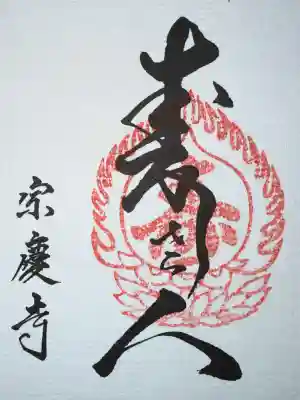 寿老人
宗慶寺